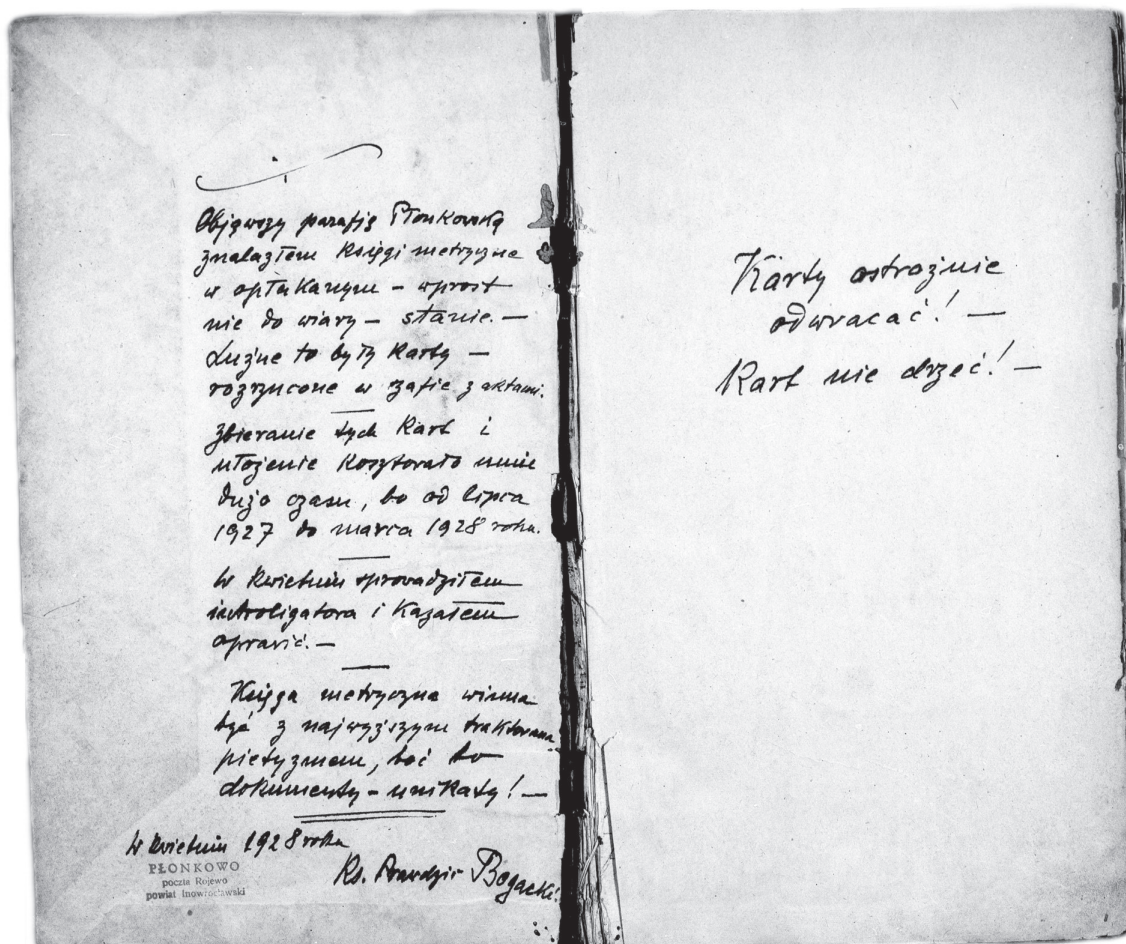 Objąwszy parafję Płonkowską
znalazłem Księgi metryczne
w opłakanym – wprost
nie do wiary – stanie. –
Luźne to były Karty –
rozrzucone w szafie z aktami.
Zbieranie tych Kart i
ułożenie Kosztowało mnie
dużo czasu, bo od lipca
1927 do marca 1928 roku.
W Kwietniu sprowadziłem
introligatora i Kazałem
oprawić. –
Księga metryczna winna
być z najwyższym traktowana
pietyzmem, boć to
dokumenty – unikaty! –
W Kwietniu 1928 roku
Ks. Bogacki
PŁONKOWO
poczta Rojewo
powiat Inowrocławski
Karty ostrożnie
odwracać! –
Kart nie drzeć! –